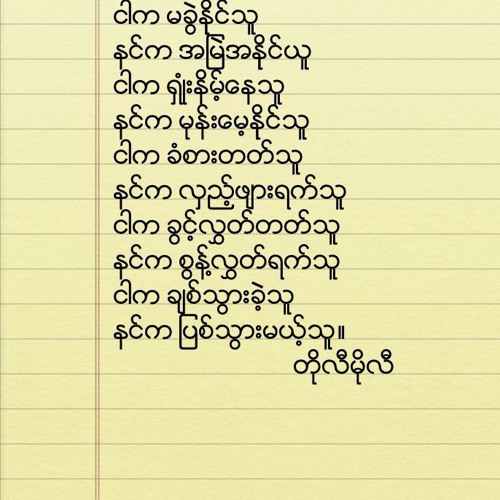 ငါက မခွဲနိုင်သူ
နင်က အမြဲအနိုင်ယူ
ငါက ရှုံးနိမ့်နေသူ
နင်က မုန်းမေ့နိုင်သူ
ငါက ခံစားတတ်သူ
နင်က လှည့်ဖျားရက်သူ
ငါက ခွင့်လွှတ်တတ်သူ
နင်က စွန့်လွှတ်ရက်သူ
ငါက ချစ်သွားခဲ့သူ
နင်က ပြစ်သွားမယ့်သူ။
တိုလီမိုလီ